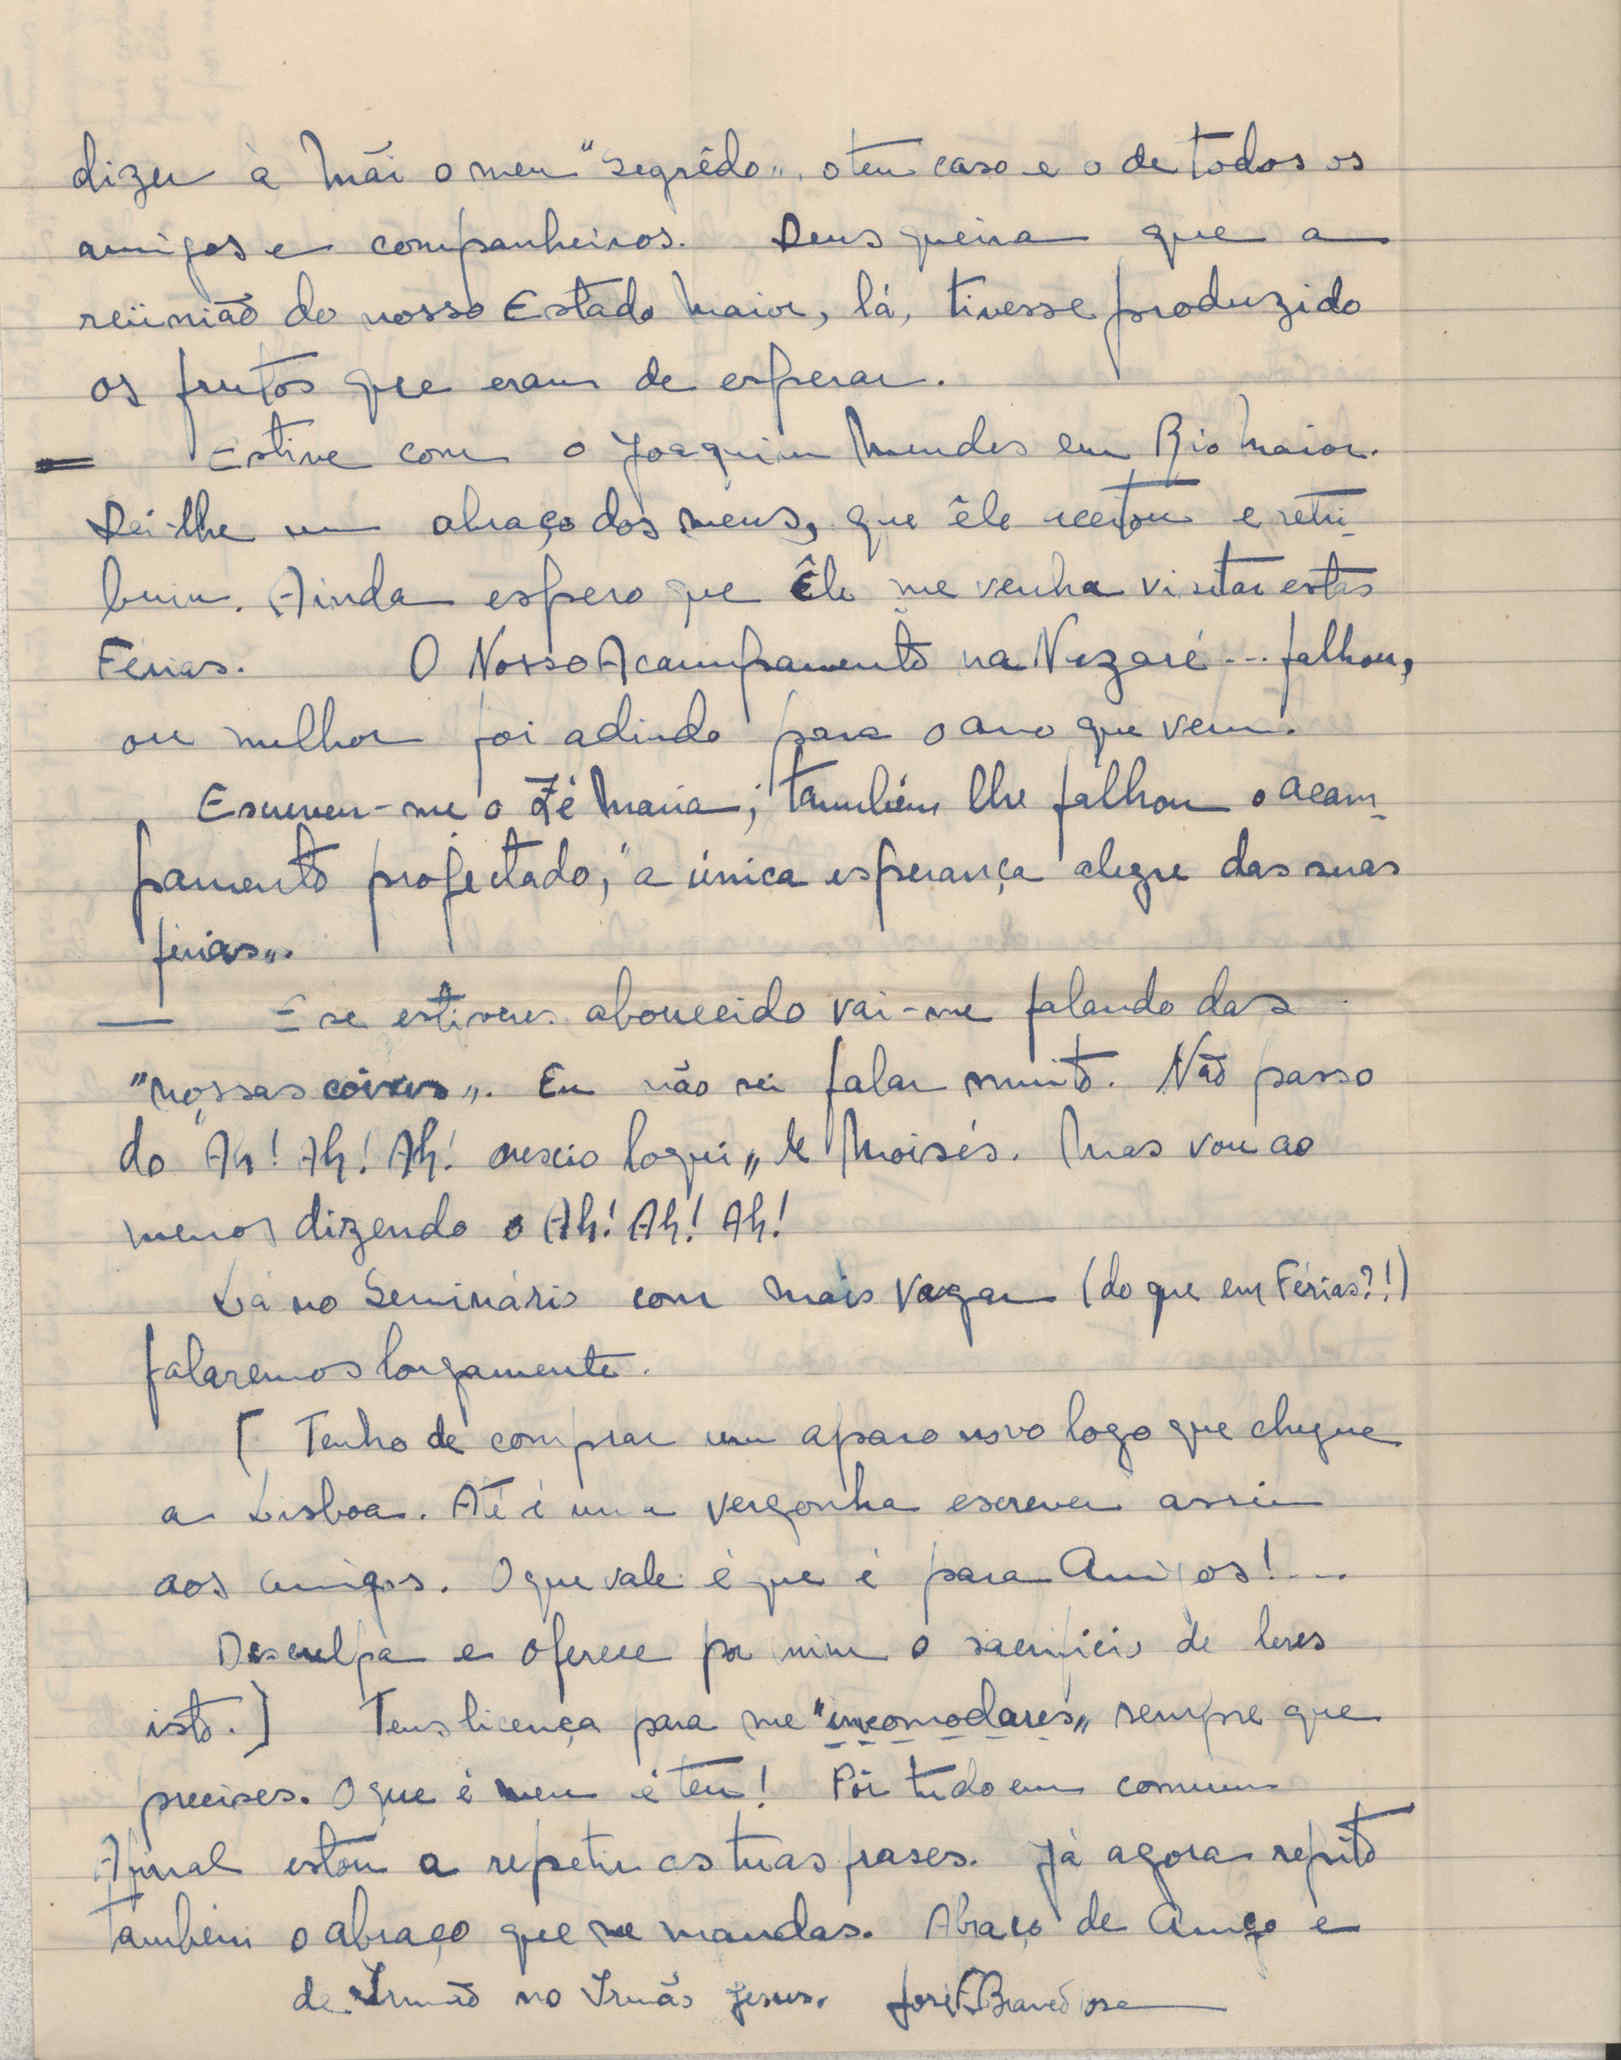 dizer à Mãi o meu "segrêdo„ o teu caso e o de todos os
amigos e companheiros. Deus queira que a
reünião do nosso Estado Maior, lá, tivesse produzido
os frutos que eram de esperar.
— Estive com o Joaquim Mendes em Rio Maior.
Dei-lhe um abraço dos meus, que êle aceitou e retri-
buiu. Ainda espero que Êle me venha visitar estas
Férias. O Nosso Acampamento na Nazaré... falhou,
ou melhor foi adiado para o ano que vem.
Escreveu-me o Zé Maria; também lhe falhou o acam-
pamento projectado, "a única esperança alegre das suas
férias„.
— E se estiveres aborrecido vai-me falando das
"nossas coisas„. Eu não sei falar muito. Não passo
do "Ah! Ah! Ah! nescio loqui„ de Moisés. Mas vou ao
menos dizendo o Ah! Ah! Ah!
Lá no Seminário com mais vagar (do que em Férias?!)
falaremos longamente.
[ Tenho de comprar um aparo novo logo que chegue
a Lisboa. Até é uma vergonha escrever assim
aos amigos. O que vale é que é para Amigos!...
Desculpa e oferece por mim o sacrifício de leres
isto.] Tens licença para me "incomodares„ sempre que
precises. O que é meu é teu! Pôr tudo em comum
Afinal estou a repetir as tuas frases. Já agora repito
também o abraço que me mandas. Abraço de Amigo e
de Irmão no Irmão Jesus. José